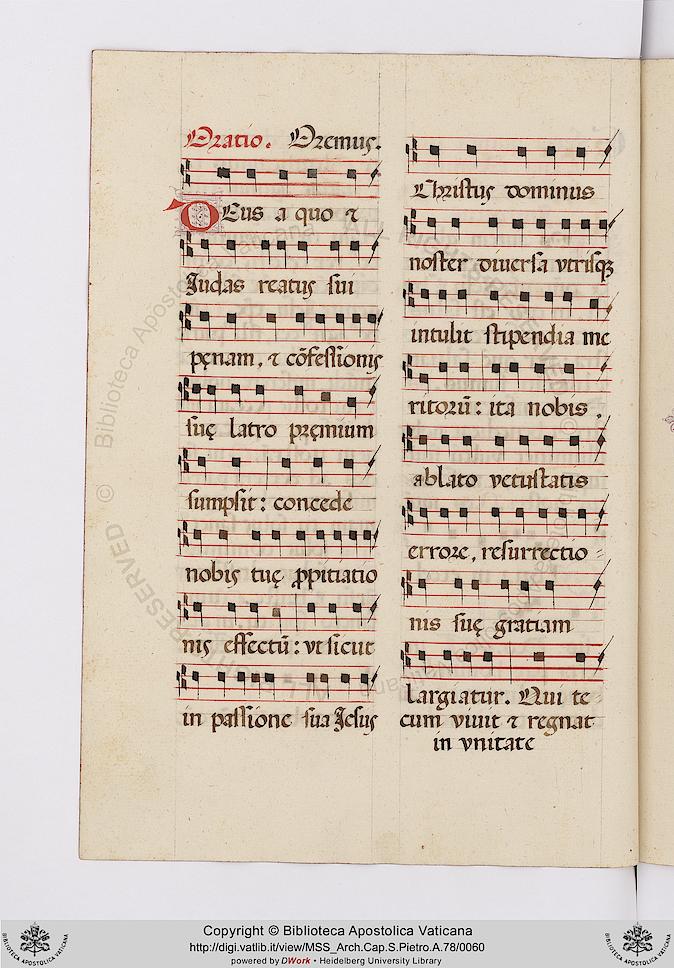 Oratio. Oremus.
Deus a quo ⁊
Iudas reatus sui
pęnam, ⁊ cõfessionis
suę latro pręmium
sumpsit: concede
nobis tuę ꝓpitiatio
nis effectũ: vt sicut
in passione sua Iesus
Christus dominus
noster diuersa vtrisqꝫ
intulit stipendia me
ritorũ: ita nobis,
ablato vetustatis
errore, resurrectio⸗
nis suę gratiam
largiatur. Qui te⸗
cum viuit ⁊ regnat
in vnitate
© Biblioteca Apostolica Vaticana
Copyright © Biblioteca Apostolica Vaticana
http://digi.vatlib.it/view/MSS_Arch.Cap.S.Pietro.A.78/0060
powered by DWork • Heidelberg University Library
BIBLIOTECA APOSTOLICA VATICANA
BIBLIOTECA APOSTOLICA VATICANA